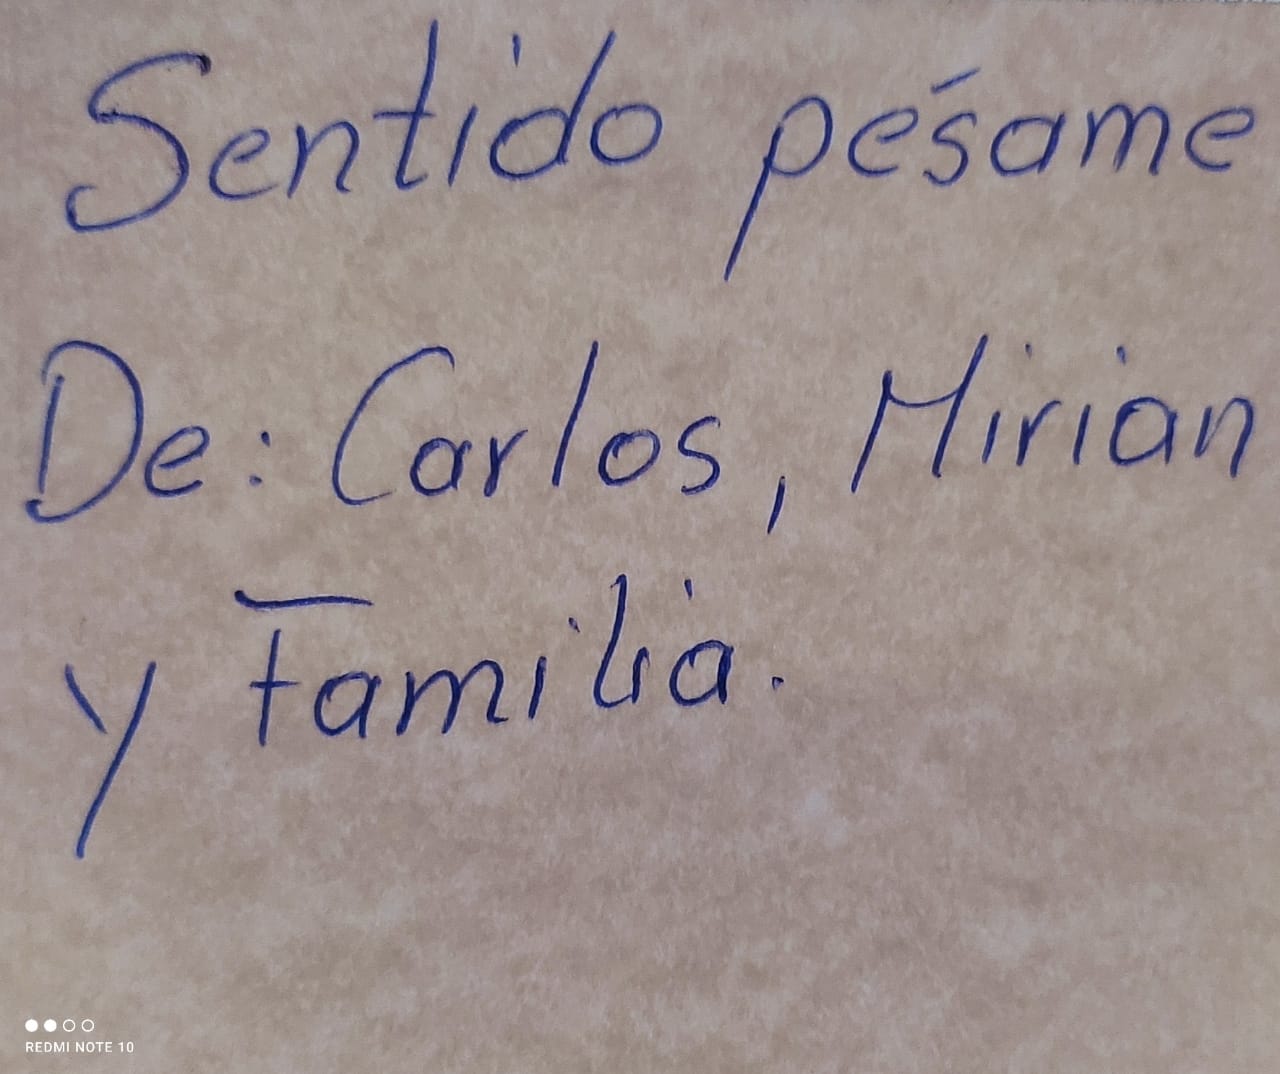 Sentido pésame
De: Carlos, Mirian
y Familia.
REDMI NOTE 10